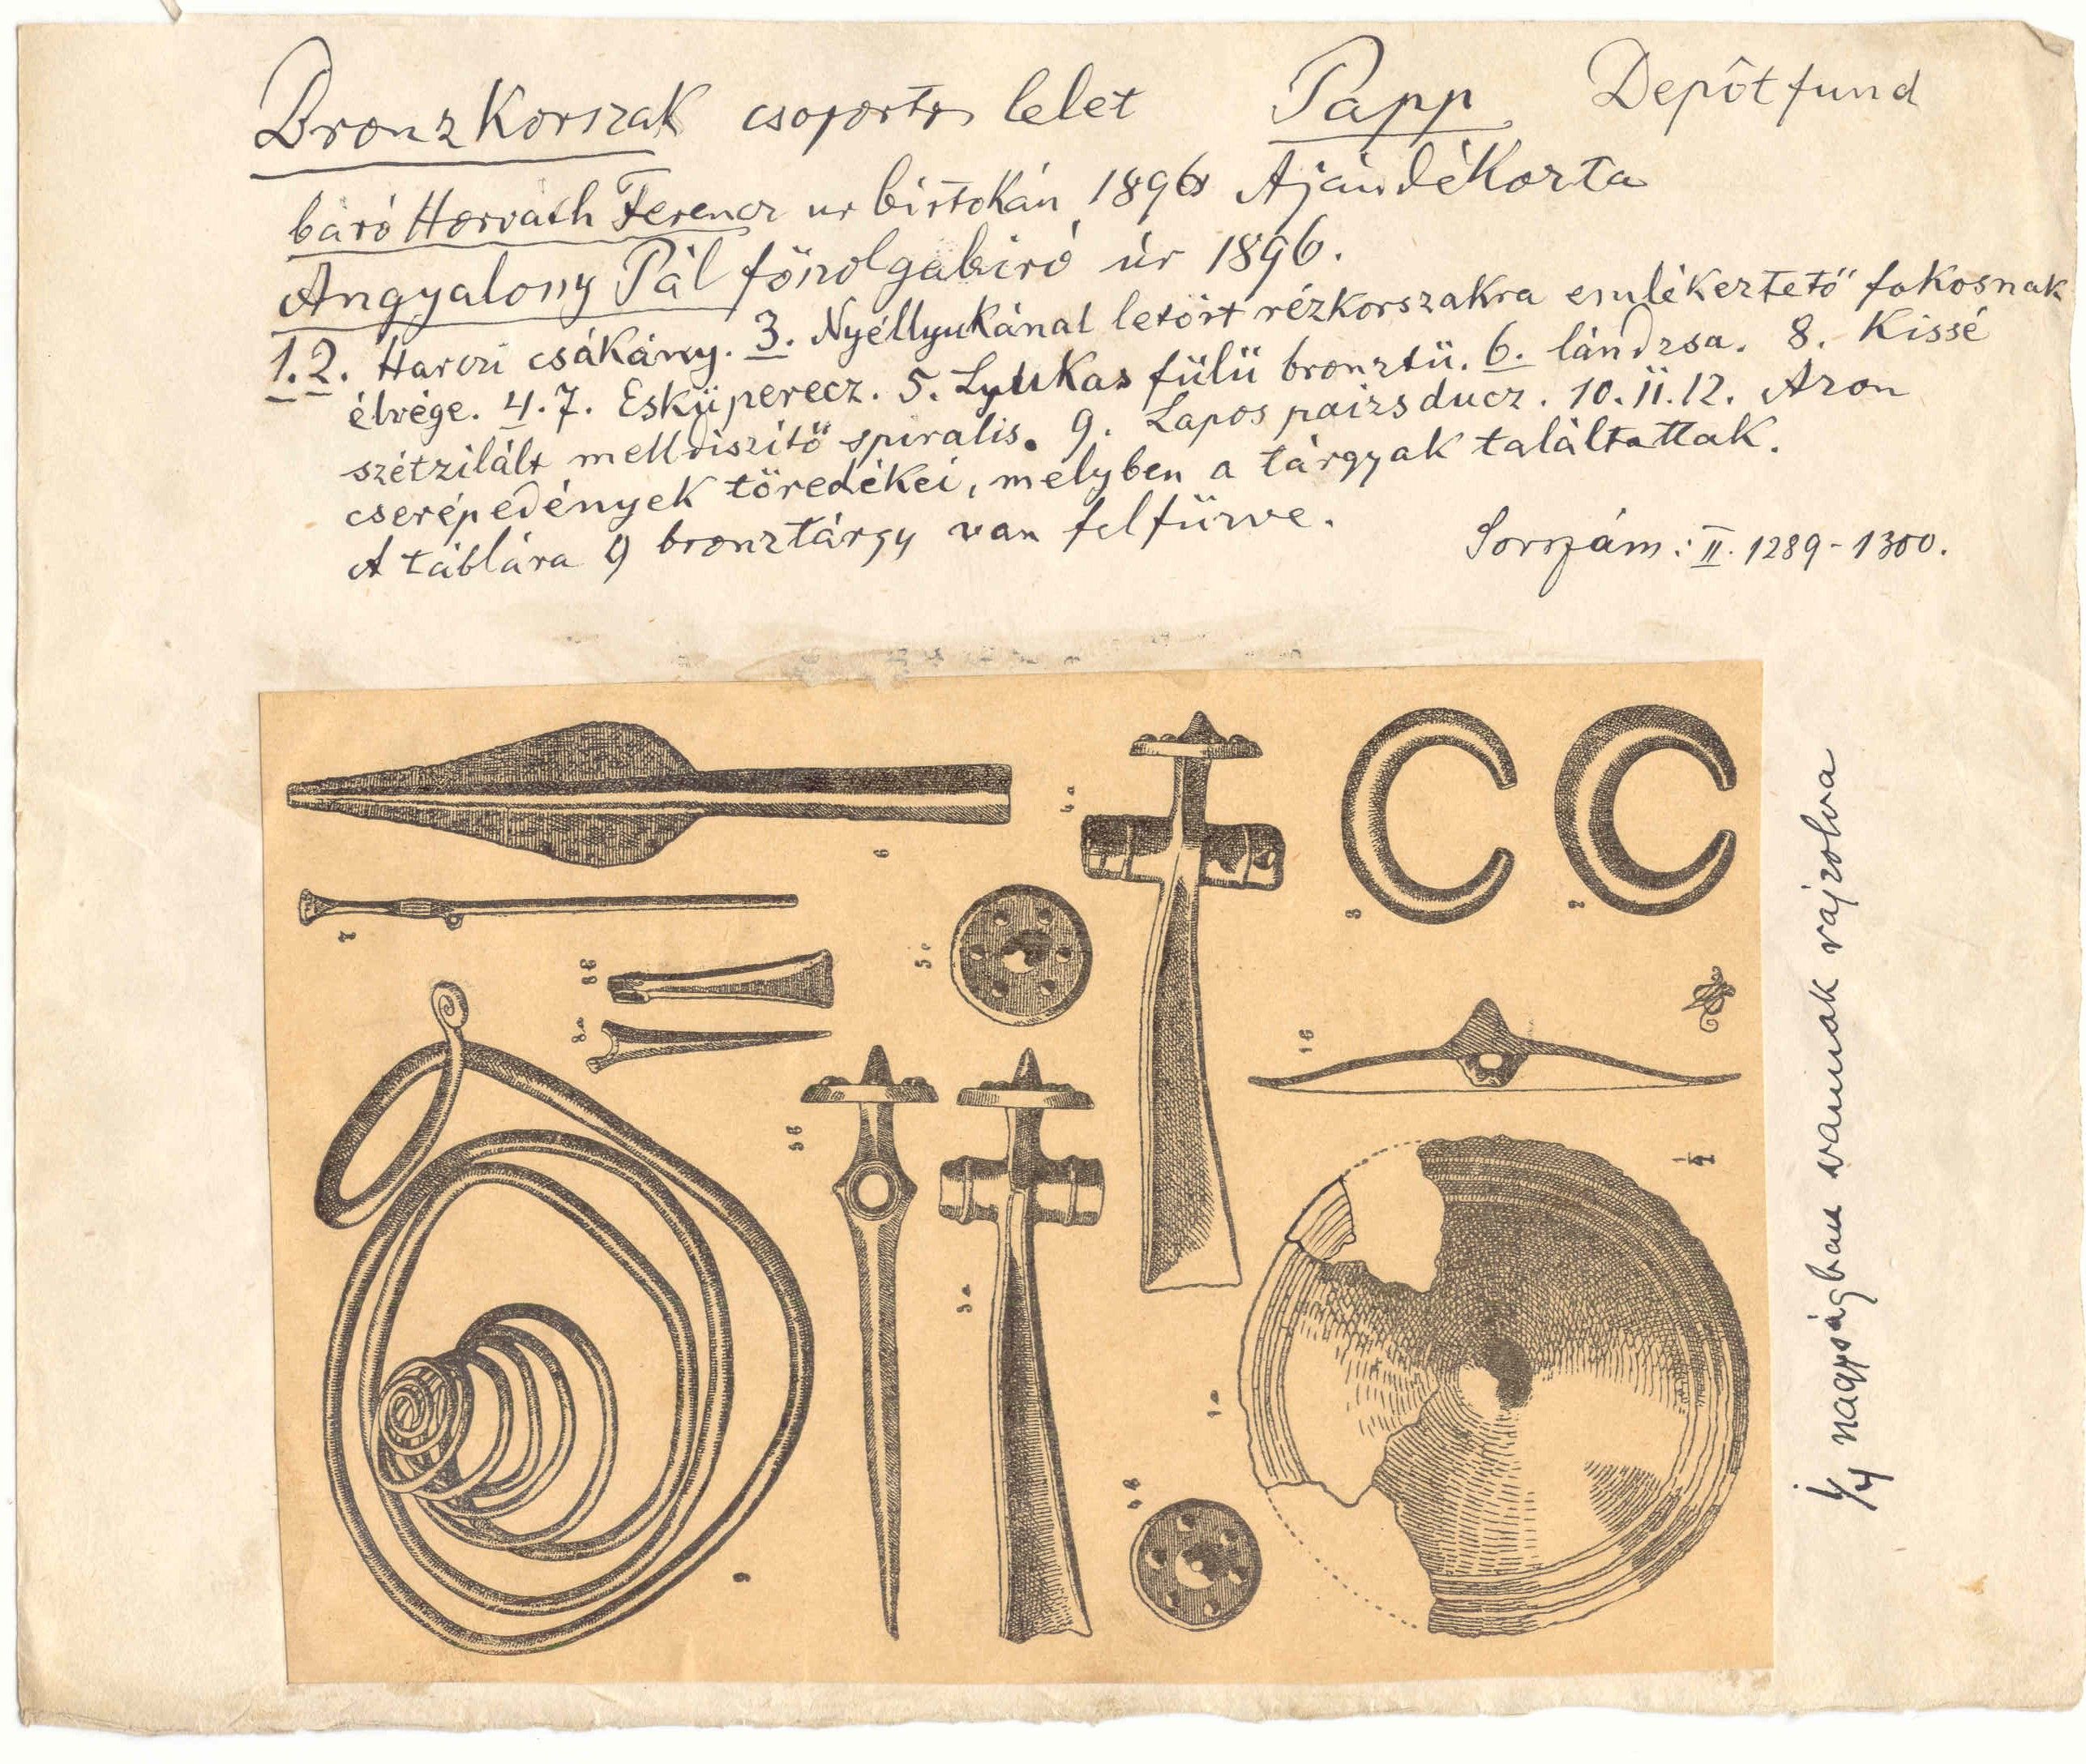 Bronzkorszak csoportos lelet Papp Depôtfund
báró Horváth Ferencz ur birtokán 1896 Ajándékozta
Angyalossy Pál főszolgabiró úr 1896.
1.2. Harczi csákány. 3. Nyéllyukánál letört rézkorszakra emlékeztető fokosnak
élvége. 4.7. Esküperecz. 5. Lyukas fülü bronztü. 6. lándzsa. 8. Kissé
szétzilált melldiszítő spiralis. 9. Lapos paizsducz. 10.11.12. Azon
cserépedények töredékei, melyben a tárgyak találtattak.
A táblára 9 bronztárgy van felfürve.
Sorszám: II. 1289-1300.
6
4a
3
2
7
8b
5c
8a
1b
5b
1/4
5a
1a
4b
9
1/4 nagyságban vannak rajzolva